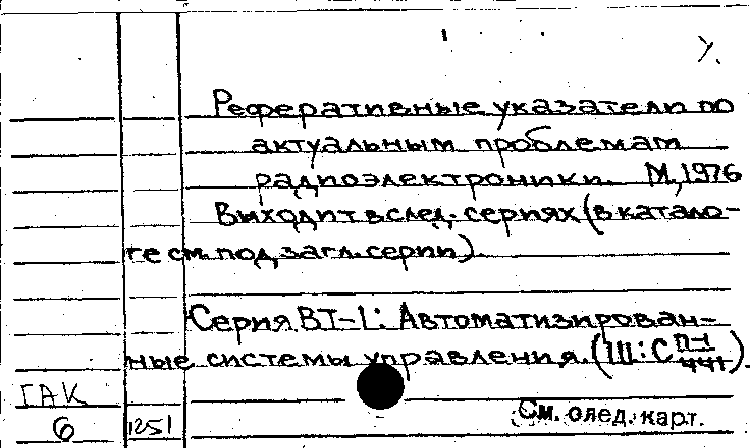 Реферативные указатели по
актуальным проблемам
радиоэлектроники. М, 1976
Выходит в след. сериях (в катало-
ге см. под загл. серии).
Серия ВТ-1: Автоматизирован-
ные системы управления. (Ш: С П-1/441).
ГАК
6 1251
См. след. карт.